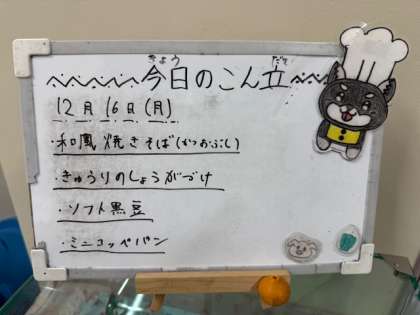 きょう だて
今日のこん立
12月16日(月)
・和風焼きそば(かつおぶし)
・きゅうりのしょうがづけ
・ソフト黒豆
・ミニコッペパン